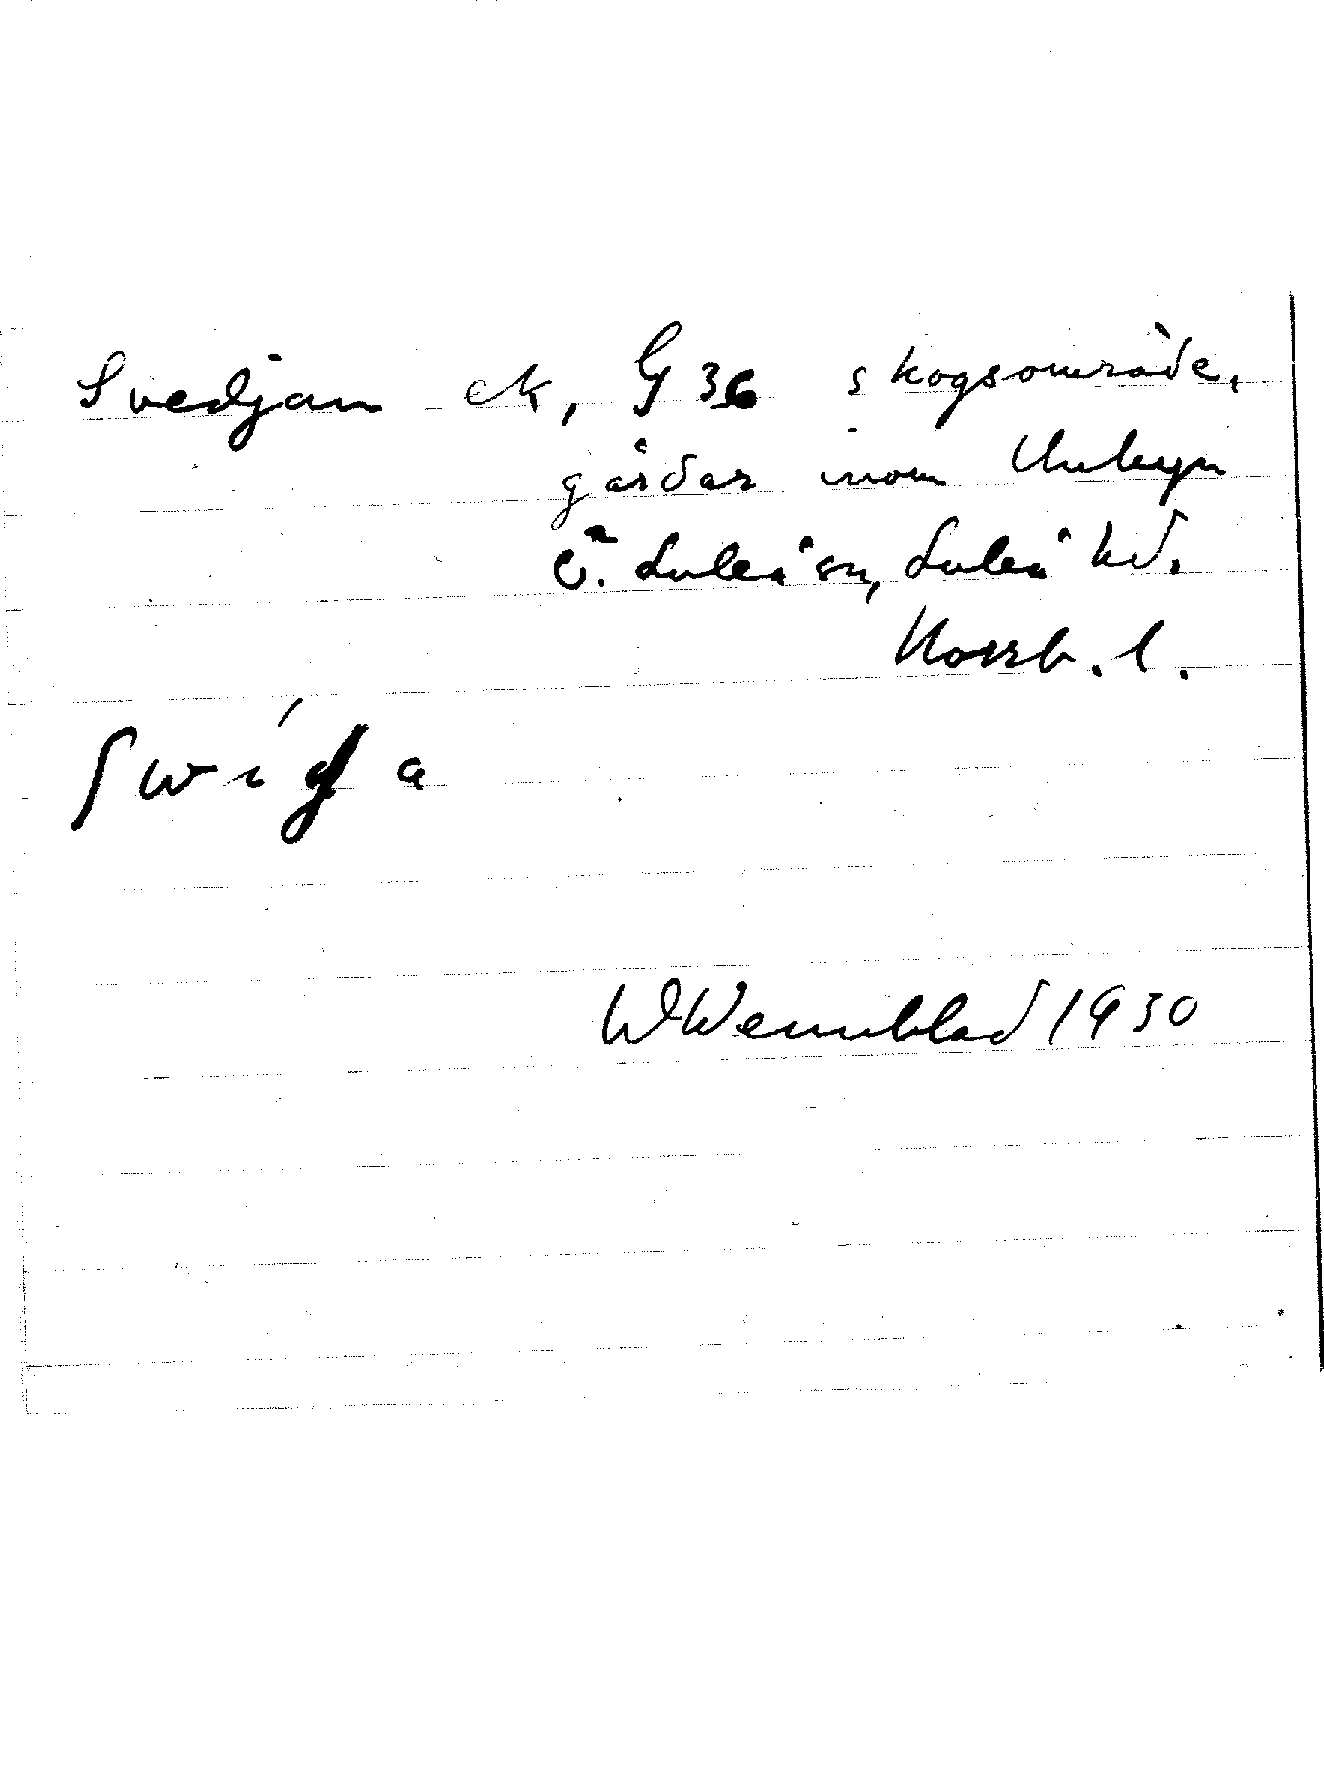 Svedjan ek, G 36 skogsområde,
gårdar inom Unbyn
Ö. Luleå sn, Luleå hd.
Norrb. l.
W Wennblad 1930